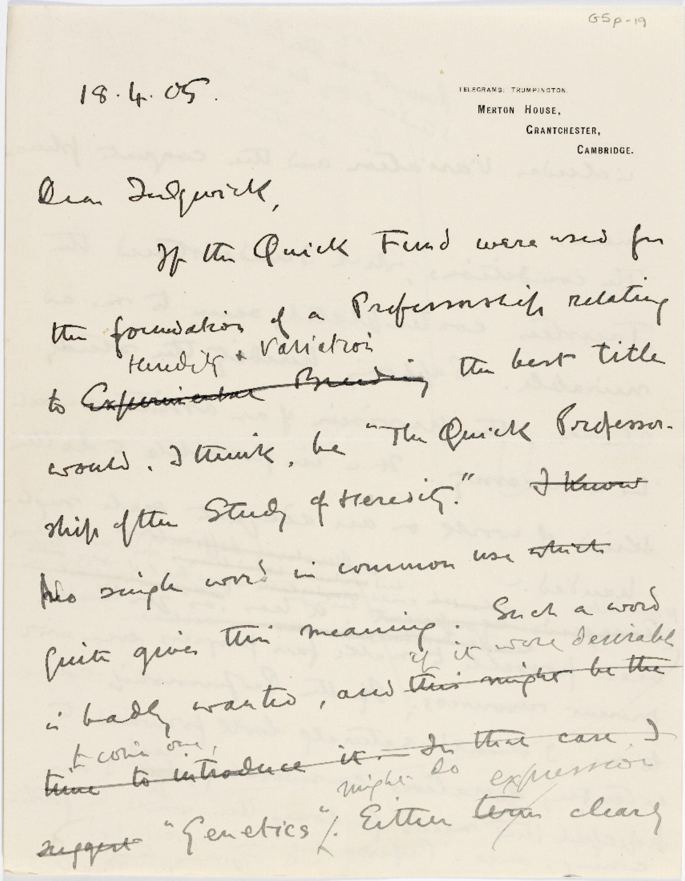 G5p-19
18.4.05.
TELEGRAMS: TRUMPINGTON.
MERTON HOUSE,
GRANTCHESTER,
CAMBRIDGE.
Dear Sedgwick,
If the Quick Fund were used for
the foundation of a Professorship relating
Heredity & Variation
to Experimental Breeding the best title
would, I think, be "The Quick Professor-
ship of the Study of Heredity." I know
No single word in common use which
quite gives this meaning. Such a word
if it were desirable
is badly wanted, and this might be the
to coin one,
time to introduce it. In that case I
might do expression
suggest "Genetics". Either term clearly